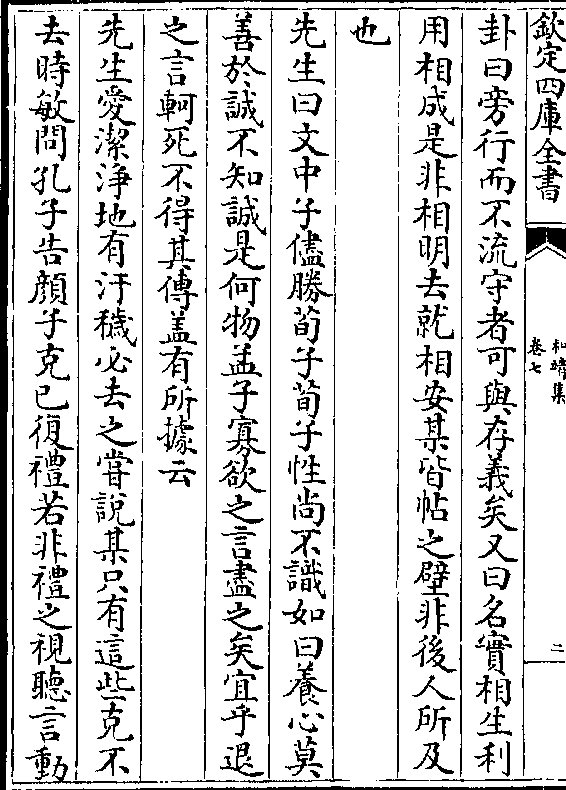 欽定四庫全書
和靖集
卷七
二
卦曰旁行而不流守者可與存義矣又曰名實相生利
用相成是非相明去就相安某皆帖之壁非後人所及
也
先生曰文中子儘勝荀子荀子性尚不識如曰養心莫
善於誠不知誠是何物孟子寡欲之言盡之矣宜乎退
之言軻死不得其傳盖有所據云
先生愛潔淨地有汙穢必去之嘗說某只有這些克不
去時敏問孔子告顔子克己復禮若非禮之視聽言動